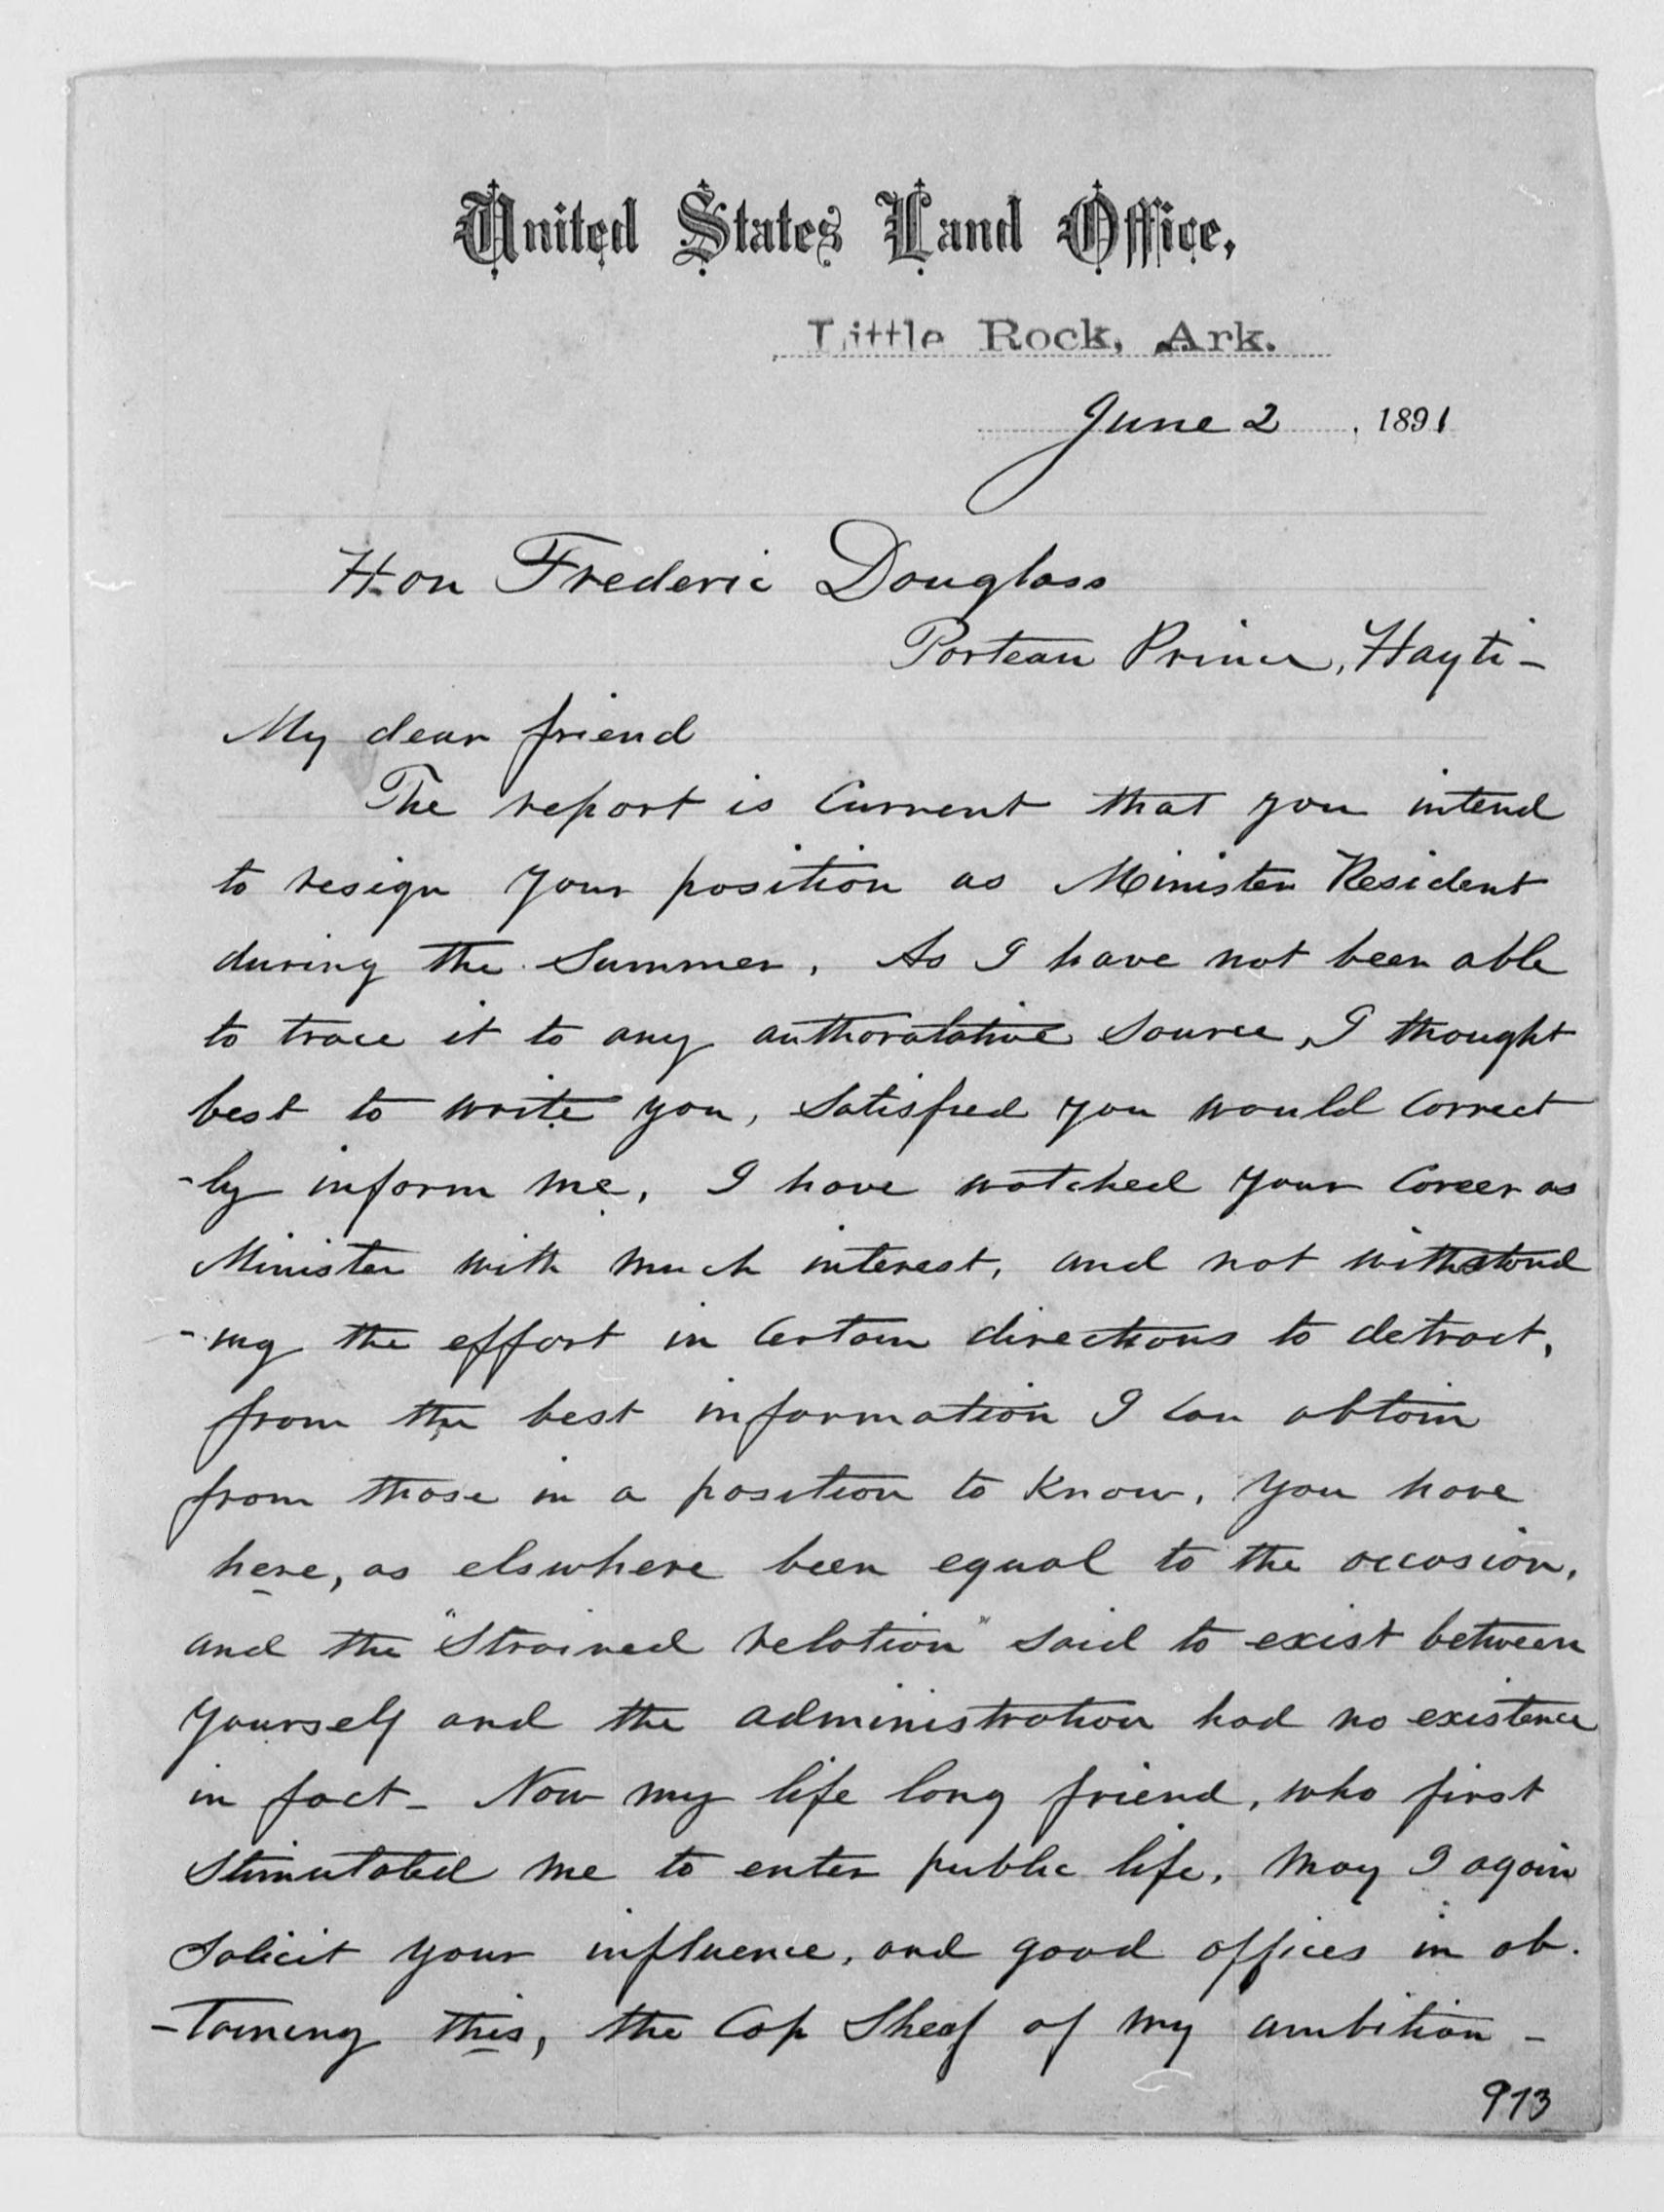 United States Land Office,
Little Rock, Ark.
June 2, 1891
Hon Frederic Douglass
Porteau Prince, Hayti -
My dear friend
The report is Current that you intend
to resign your position as Minister Resident
during the Summer. As I have not been able
to trace it to any authoratative source, I thought
best to write you, satisfied you would Correct
-ly inform me. I have watched your Career as
Minister with much interest, and not withstand
-ing the effort in Certain directions to detract,
from the best information I can obtain
from those in a position to Know, you have
here, as elswhere been equal to the occasion,
and the "Strained relation" said to exist between
yourself and the administration had no existence
in fact - Now my life long friend, who first
stimulated me to enter public life, may I again
solicit your influence, and good offices in ob.
-taining this, the Cap Sheaf of my ambition -
913